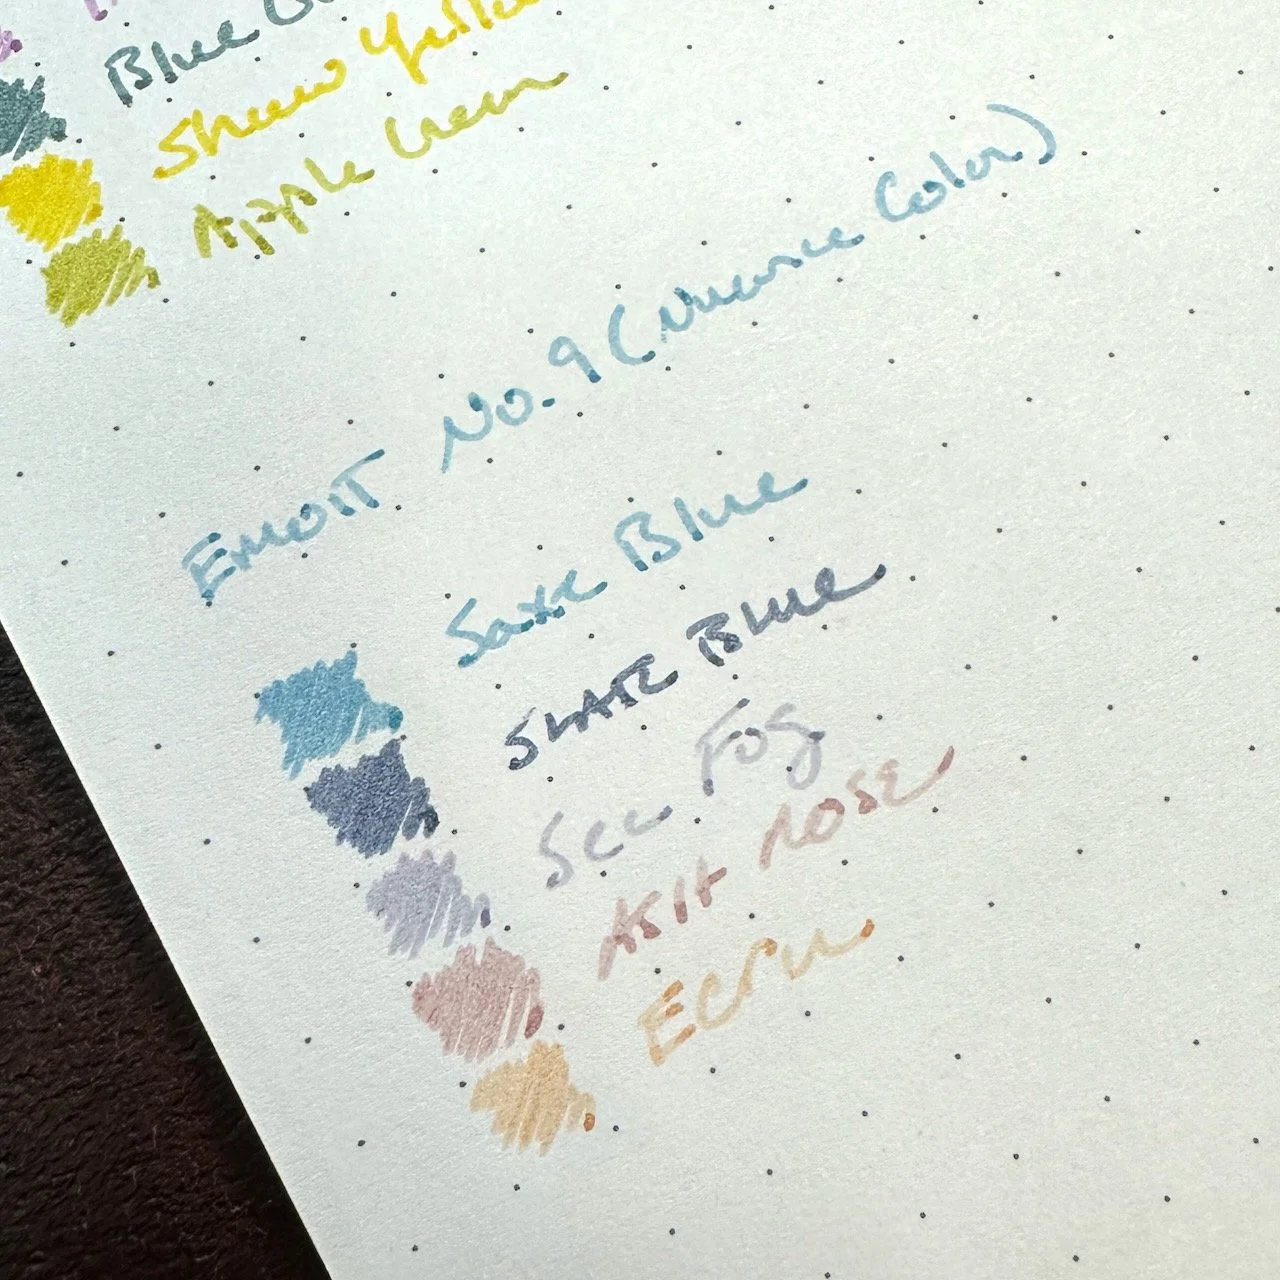 Blue
Sheer Yellow
Apple Green
EMOTT No. 9 (Nuance Color)
Saxe Blue
SLATE BLUE
Sea Fog
ASH ROSE
Ecru